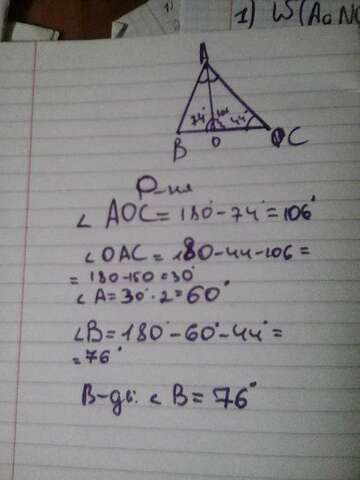 1) W(AaNO
A
74° 106 44°
B O C
Р-ня
∠ AOC = 180° - 74° = 106°
∠ OAC = 180 - 44 - 106 =
= 180 - 150 = 30°
∠ A = 30° · 2 = 60°
∠ B = 180° - 60° - 44° =
= 76°
В-дь: ∠ B = 76°